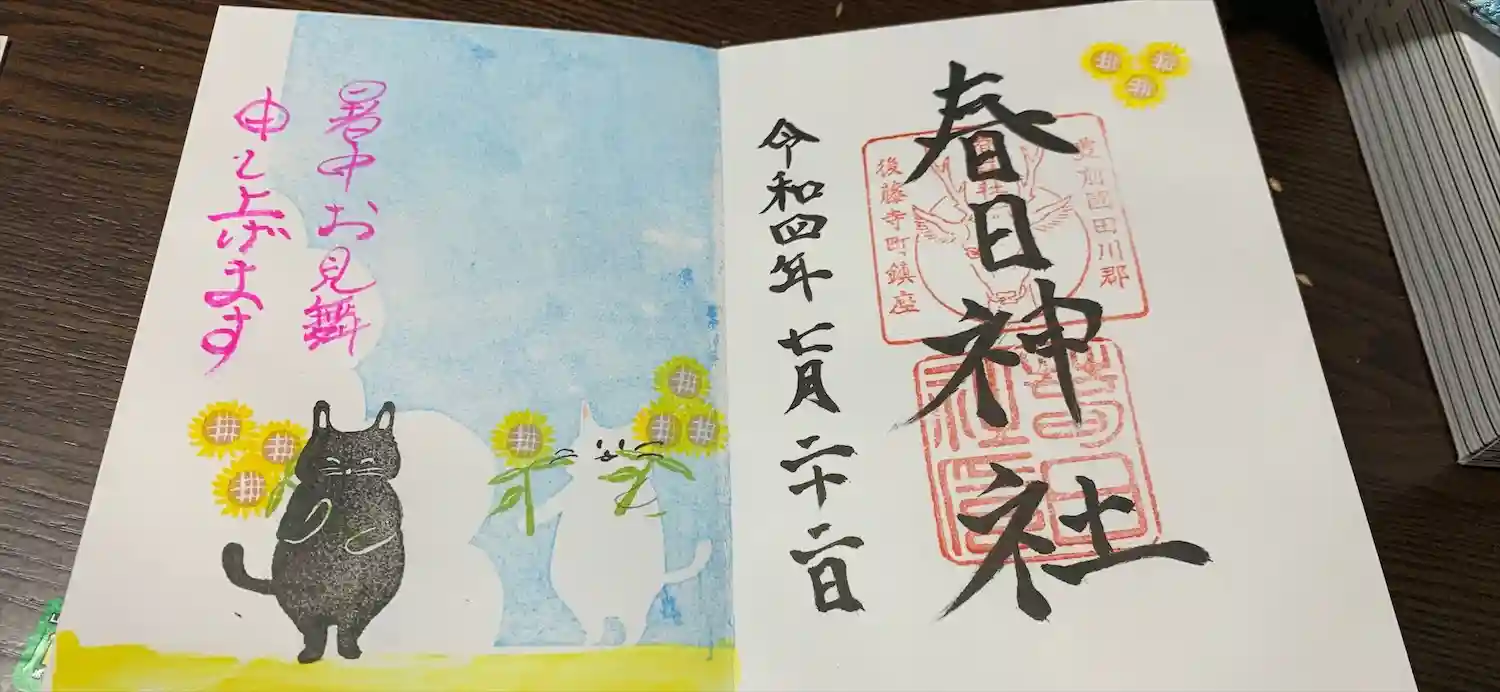 春日神社
豊前國田川郡
後藤寺町鎮座
令和四年七月二十二日
暑中お見舞
申し上げます